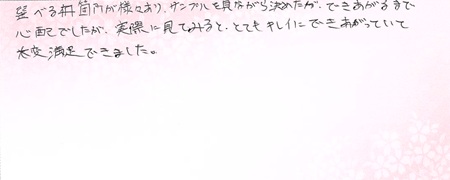 選べる冊箇所が様々あり、サンプルを見ながら決めたが、できあがるまで
心配でしたが、実際に見てみると、とてもキレイにできあがっていて
大変満足できました。